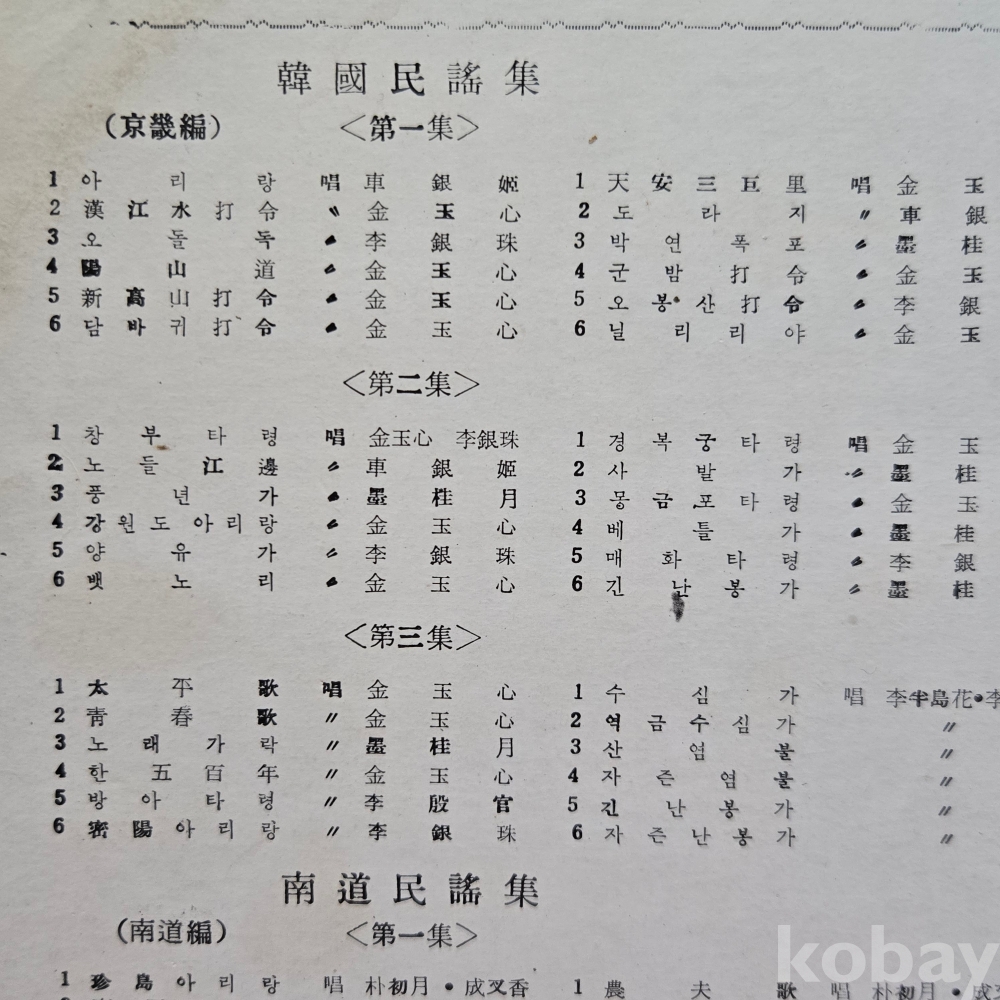 韓國民謠集
(京畿編) <第一集>
1 아리랑 唱 車銀姬
2 漢江水打令 〃 金玉心
3 오돌독 〃 李銀珠
4 陽山道 〃 金玉心
5 新高山打令 〃 金玉心
6 담바귀打令 〃 金玉心
1 天安三巨里 唱 金玉
2 도라지 〃 車銀
3 박연폭포 〃 墨桂
4 군밤打令 〃 金玉
5 오봉산打令 〃 李銀
6 닐리리야 〃 金玉
<第二集>
1 창부타령 唱 金玉心 李銀珠
2 노들江邊 〃 車銀姬
3 풍년가 〃 墨桂月
4 강원도아리랑 〃 金玉心
5 양유가 〃 李銀珠
6 뱃노리 〃 金玉心
1 경복궁타령 唱 金玉
2 사발가 〃 墨桂
3 몽금포타령 〃 金玉
4 베틀가 〃 墨桂
5 매화타령 〃 李銀
6 긴난봉가 〃 墨桂
<第三集>
1 太平歌 唱 金玉心
2 靑春歌 〃 金玉心
3 노래가락 〃 墨桂月
4 한五百年 〃 金玉心
5 방아타령 〃 李殷官
6 密陽아리랑 〃 李銀珠
1 수심가 唱 李半島花•李
2 역금수심가 〃
3 산염불 〃
4 자즌염불 〃
5 긴난봉가 〃
6 자즌난봉가 〃
南道民謠集
(南道編) <第一集>
1 珍島아리랑 唱 朴初月•成叉香
1 農夫歌 唱 朴初月•成
kobay